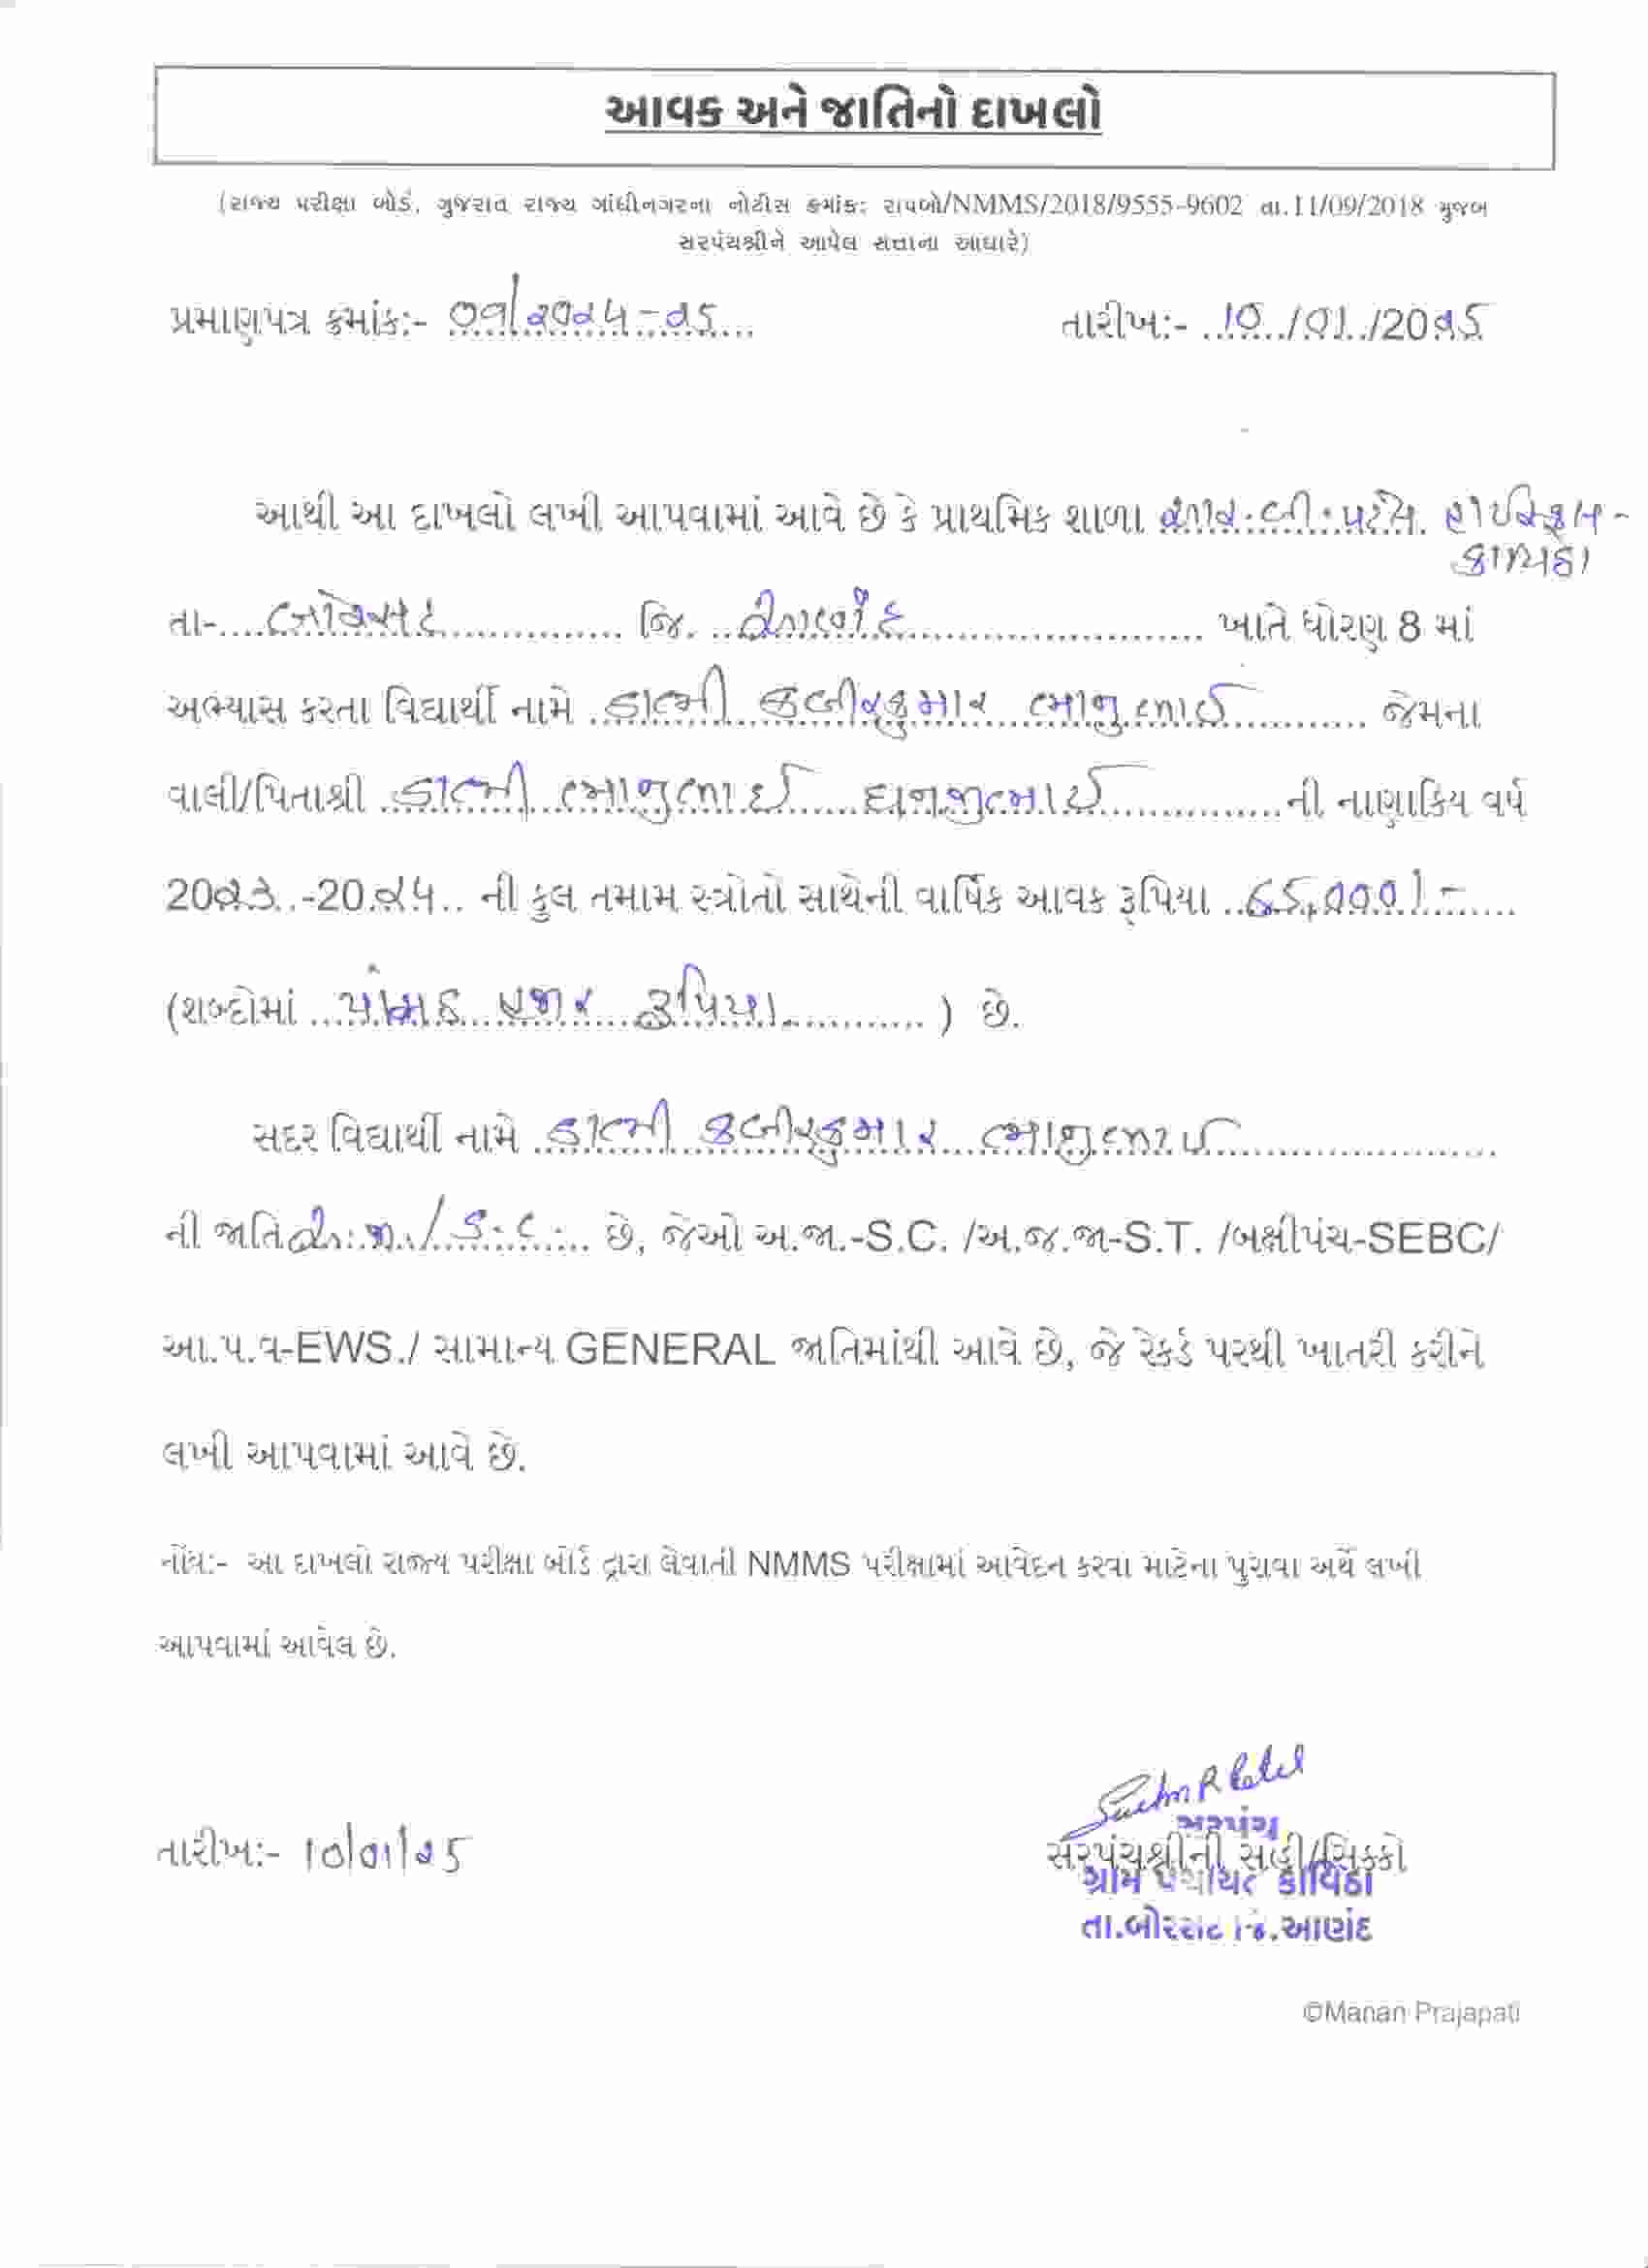 આવક અને જાતિનો દાખલો
(રાજ્ય પરીક્ષા બોર્ડ, ગુજરાત રાજ્ય ગાંધીનગરના નોટીસ ક્રમાંક: રાપબો/NMMS/2018/9555-9602 તા.11/09/2018 મુજબ
સરપંચશ્રીને આપેલ સત્તાના આધારે)
પ્રમાણપત્ર ક્રમાંક:- ૦૧/૨૦૨૪-૨૫ તારીખ:- 10/01/20૨5
આથી આ દાખલો લખી આપવામાં આવે છે કે પ્રાથમિક શાળા આર.બી.પટેલ હાઈસ્કૂલ-
કાવિઠા
તા-બોરસદ જિ. આણંદ ખાતે ધોરણ 8 માં
અભ્યાસ કરતા વિદ્યાર્થી નામે ડાભી કબીરકુમાર ભાનુભાઈ જેમના
વાલી/પિતાશ્રી ડાભી ભાનુભાઈ ધનજીભાઈ ની નાણાકિય વર્ષ
20૨૩-20૨૪ ની કુલ તમામ સ્ત્રોતો સાથેની વાર્ષિક આવક રૂપિયા ૬૫,૦૦૦/-
(શબ્દોમાં પાંસઠ હજાર રૂપિયા ) છે.
સદર વિદ્યાર્થી નામે ડાભી કબીરકુમાર ભાનુભાઈ
ની જાતિ અ.જા./S.C. છે, જેઓ અ.જા.-S.C. /અ.જ.જા-S.T. /બક્ષીપંચ-SEBC/
આ.પ.વ-EWS./ સામાન્ય GENERAL જાતિમાંથી આવે છે, જે રેકર્ડ પરથી ખાતરી કરીને
લખી આપવામાં આવે છે.
નોંધ:- આ દાખલો રાજ્ય પરીક્ષા બોર્ડ દ્વારા લેવાતી NMMS પરીક્ષામાં આવેદન કરવા માટેના પુરાવા અર્થે લખી
આપવામાં આવેલ છે.
સરપંચ
તારીખ:- 10/01/૨5 સરપંચશ્રીની સહી/સિક્કો
ગ્રામ પંચાયત કાવિઠા
તા.બોરસદ જિ.આણંદ
©Manan Prajapati